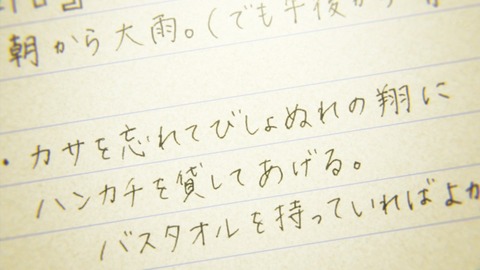 朝から大雨。(でも午後から
・カサを忘れてびしょぬれの翔に
ハンカチを貸してあげる。
バスタオルを持っていればよか